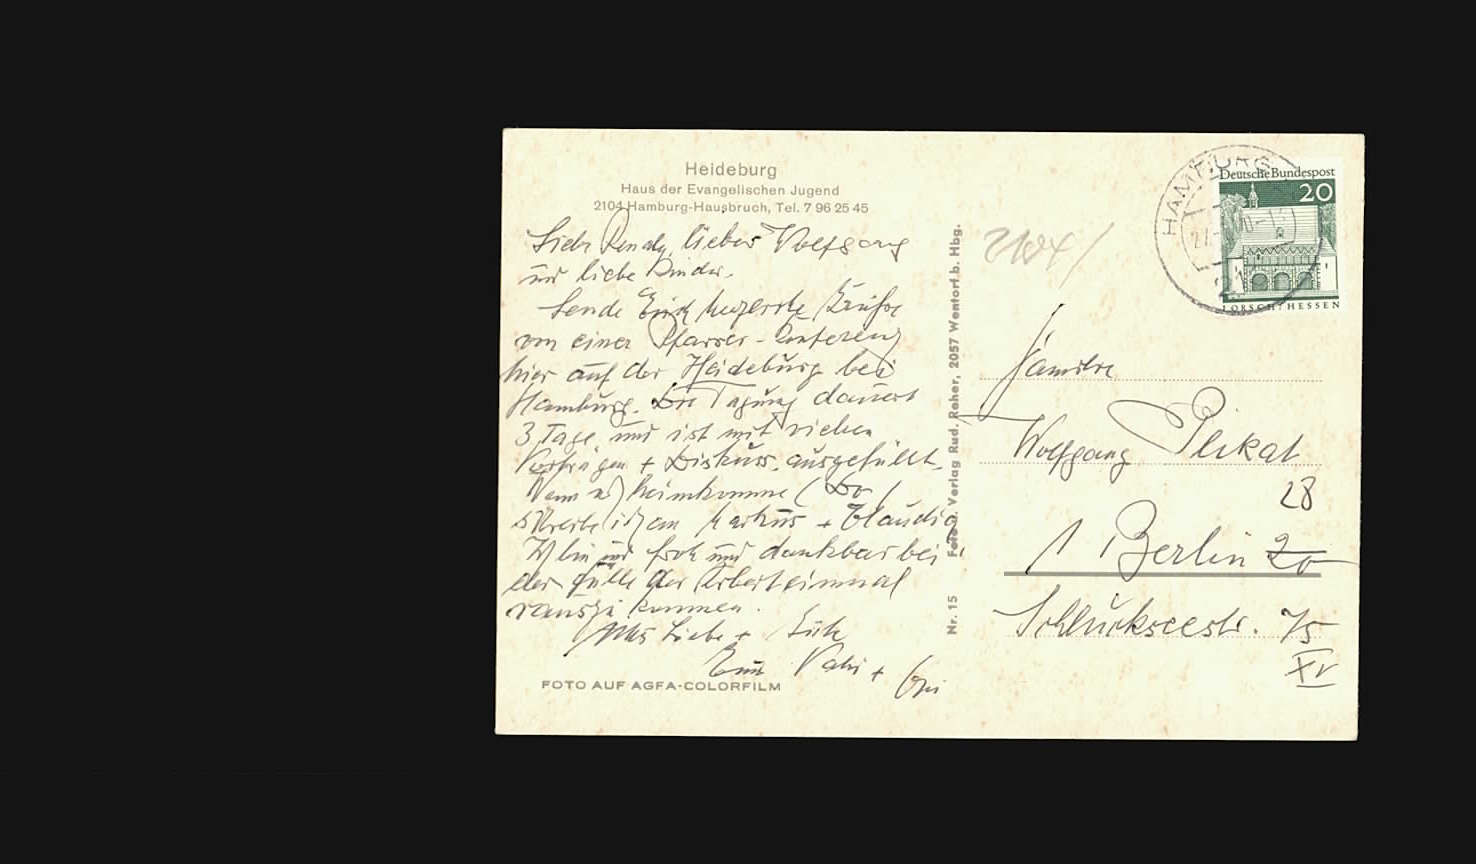 Heideburg
Haus der Evangelischen Jugend
2104 Hamburg-Hausbruch, Tel. 7 96 25 45
Liebe lieber Wolfgang
und liebe Kinder.
Sende Euch herzliche Grüße
von einer Pfarrer-Konferenz
hier auf der Heideburg bei
Hamburg. Die Tagung dauert
3 Tage und ist mit vielen
Vorträgen + Diskuss. ausgefüllt.
Wenn ich heimkomme (Do)
schreibe ich an Markus + Claudia
Ich bin froh und dankbar bei
der Fülle der Arbeit einmal
rauszukommen.
Alles Liebe + Gute
Euer Vati + Opi
FOTO AUF AGFA-COLORFILM
Nr. 15 Foto u. Verlag Rud. Reher, 2057 Wentorf b. Hbg.
HAMBURG
Deutsche Bundespost
20
LORSCH/HESSEN
Familie
Wolfgang Plikat
28
1 Berlin 20
Schluckseestr. 75
XV